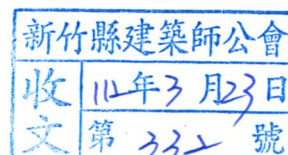 新竹縣建築師公會
收文
112年3月23日
第332號